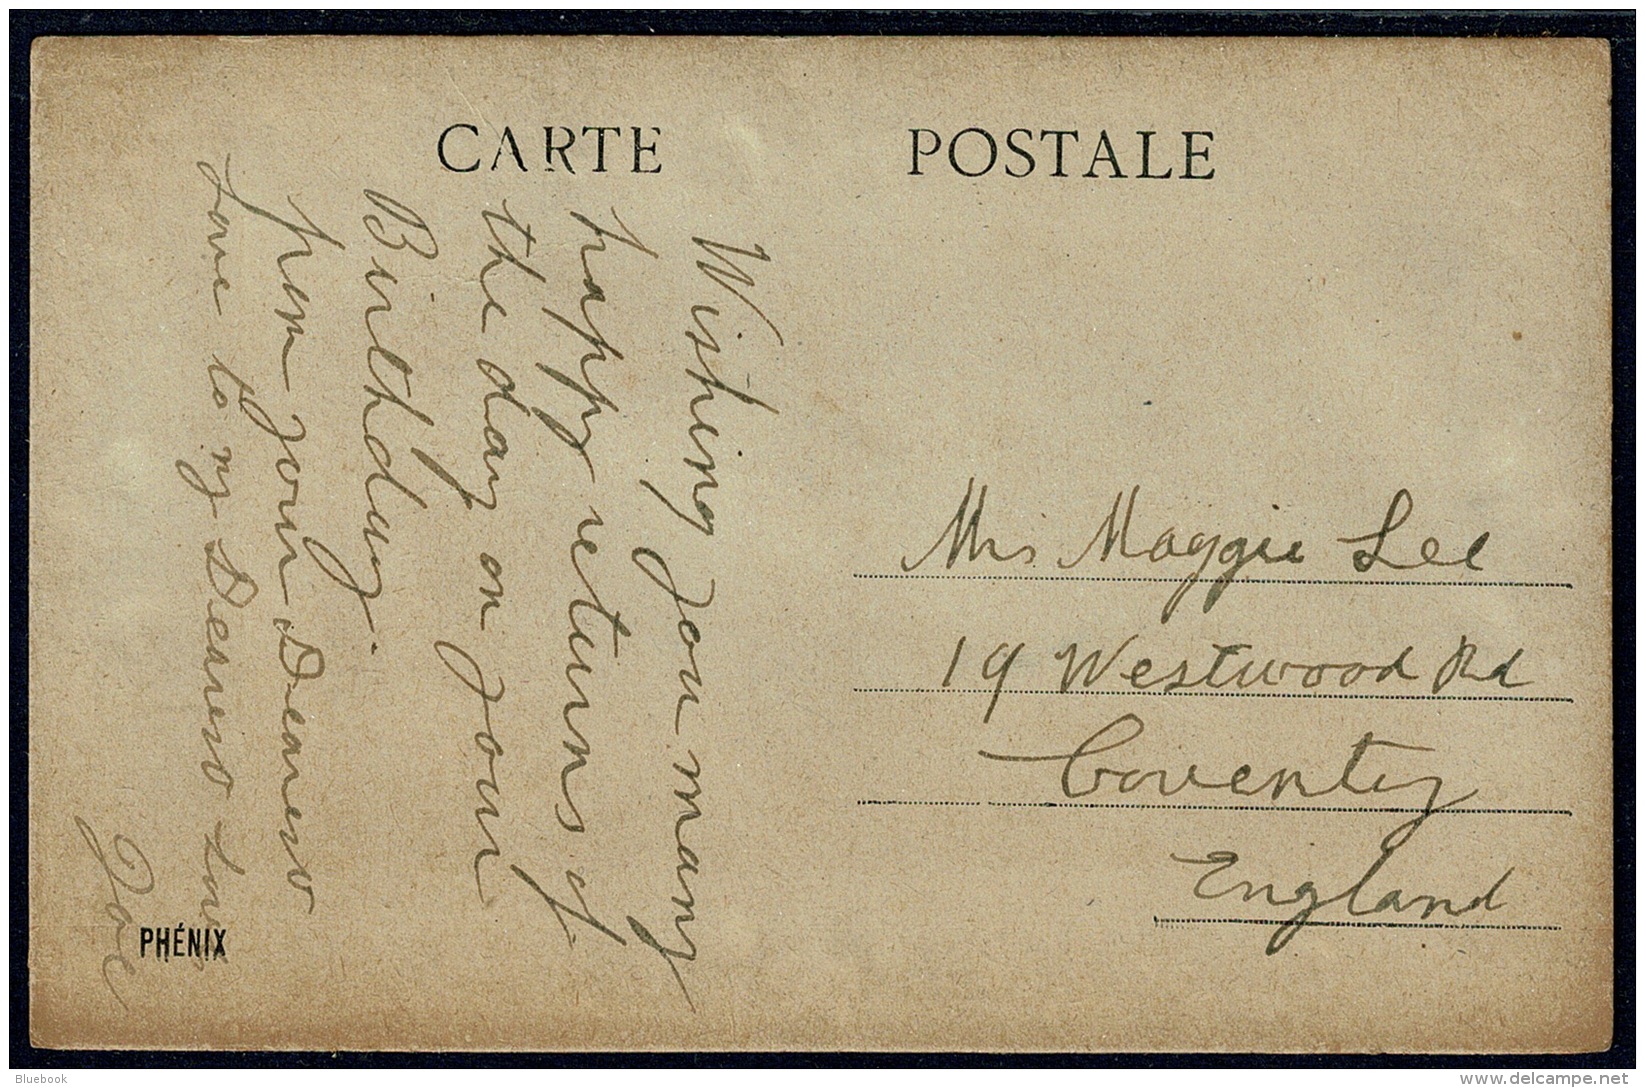 CARTE POSTALE
Wishing you many
happy returns of
the day on your
Birthday.
from your Dearest
Love to my Dearest Love
Joe
PHÉNIX
Mrs Maggie Lee
19 Westwood Rd
Coventry
England
Bluebook
www.delcampe.net